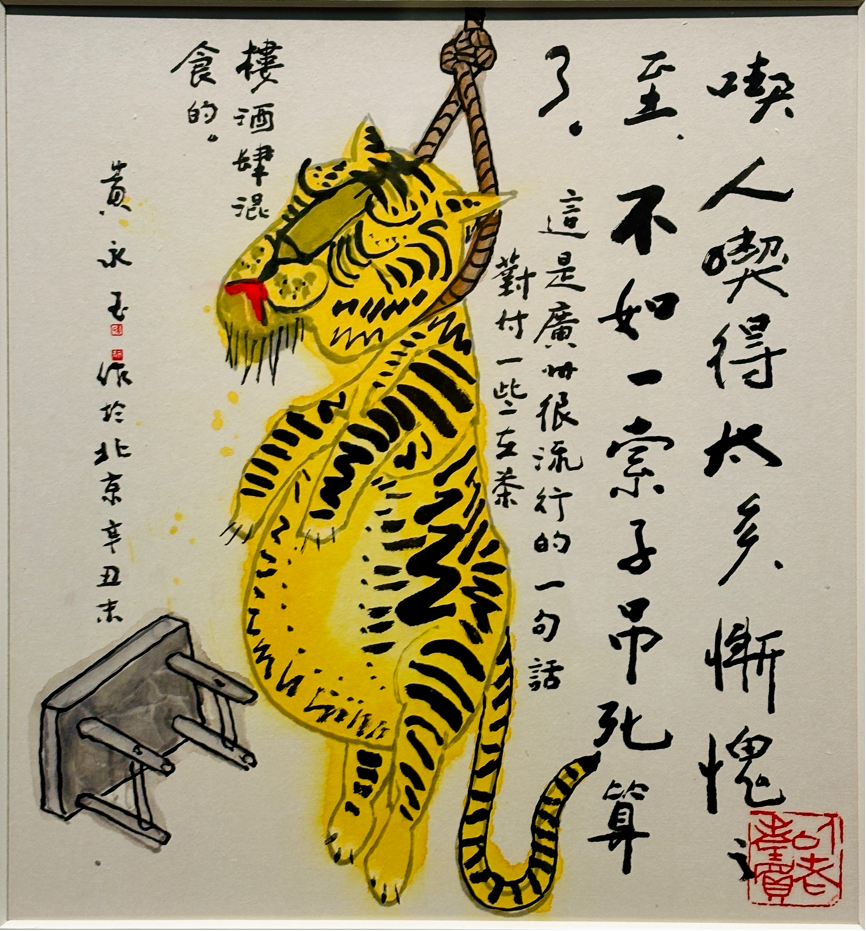 喫人喫得太多慚愧之
至、不如一索子吊死算
了。
這是廣州很流行的一句話
對付一些在茶
樓酒肆混
食的。
黃永玉 作於北京辛丑末